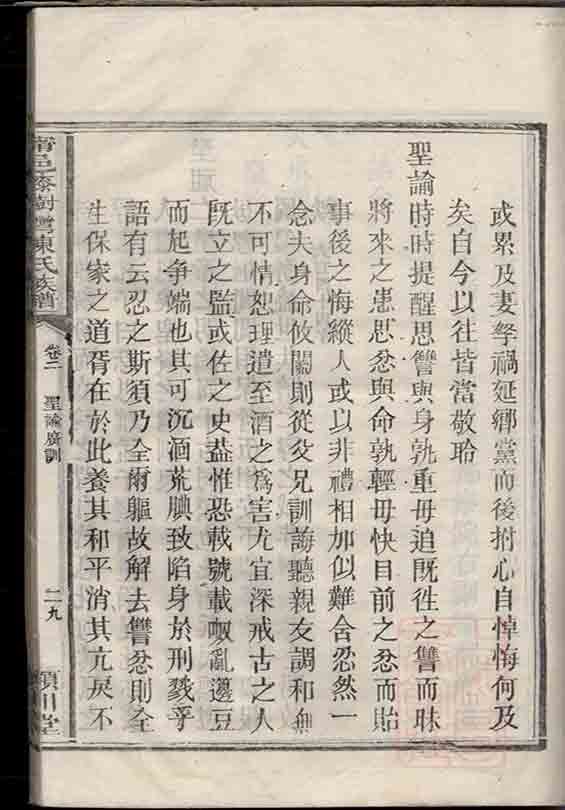 或累及妻孥禍延鄉黨而後拊心自悼悔何及
矣自今以往皆當敬聆
聖諭時時提醒思讐與身孰重毋追既徃之讐而昧
將來之患思忿與命孰輕毋快目前之忿而貽
事後之悔縱人或以非禮相加似難含忍然一
念夫身命攸關則從父兄訓誨聽親友調和無
不可情恕理遣至酒之為害尤宜深戒古之人
既立之監或佐之史葢惟恐載號載呶亂籩豆
而起爭端也其可沉湎荒腆致陷身於刑戮乎
語有云忍之斯須乃全爾軀故解去讐忿則全
生保家之道胥在於此養其和平消其亢戾不
甯邑 樹灣陳氏族譜
卷二
聖諭廣訓
二九
潁川堂